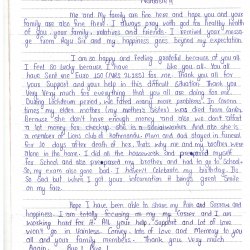 Me and My family are fine here and hope you and your
family are also fine there. I always pray with god for healthy health
of you, your family, relatives and friends. I received your messa-
ge from Aayu Sir and my happiness goes beyond my expectation.
I am so happy and feeling grateful because of you all.
I feel so lucky because I have like you all. You all
have sent me Euro 150 (NRs 21,155) for me. Thank you all for
your support and your help in this difficult situation. Thank you
very very much for everything that you all are doing for me.
During lockdown period, we faced many more problems. In corona
times my elder mother (my mother's sister) was died from cancer.
Because she don't have enough money and also we don't afford
a lot money for checkup. She is a And also she
is a member of Lions club of Kathmandu. Mom and dad stayed in funeral
for 10 days after death of her. That's why me and my brother were
alone in the home. I did all the housework and prepared myself
for School and also prepared my brother and had to go to School.
So, my exam also gone bad. I haven't celebrate my birthday too.
So sad but when I got your information it bought great smile
on my face.
Hope I have been able to share my Pain and Sorrow and
happiness. I am totally focusing on my my career and I am
working hard for it. All your help, support and lot of love
won't go in vainless. Convey lots of Love and Memory to you
all and your family members. Thank you very much
Again. Bye! Bye!